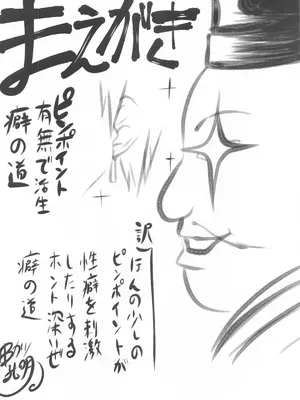 まえがき
ピンポイント
有無で活生
癖の道
訳 ほんの少しの
ピンポイントが
性癖を刺激
したりする
ホント深いぜ
癖の道